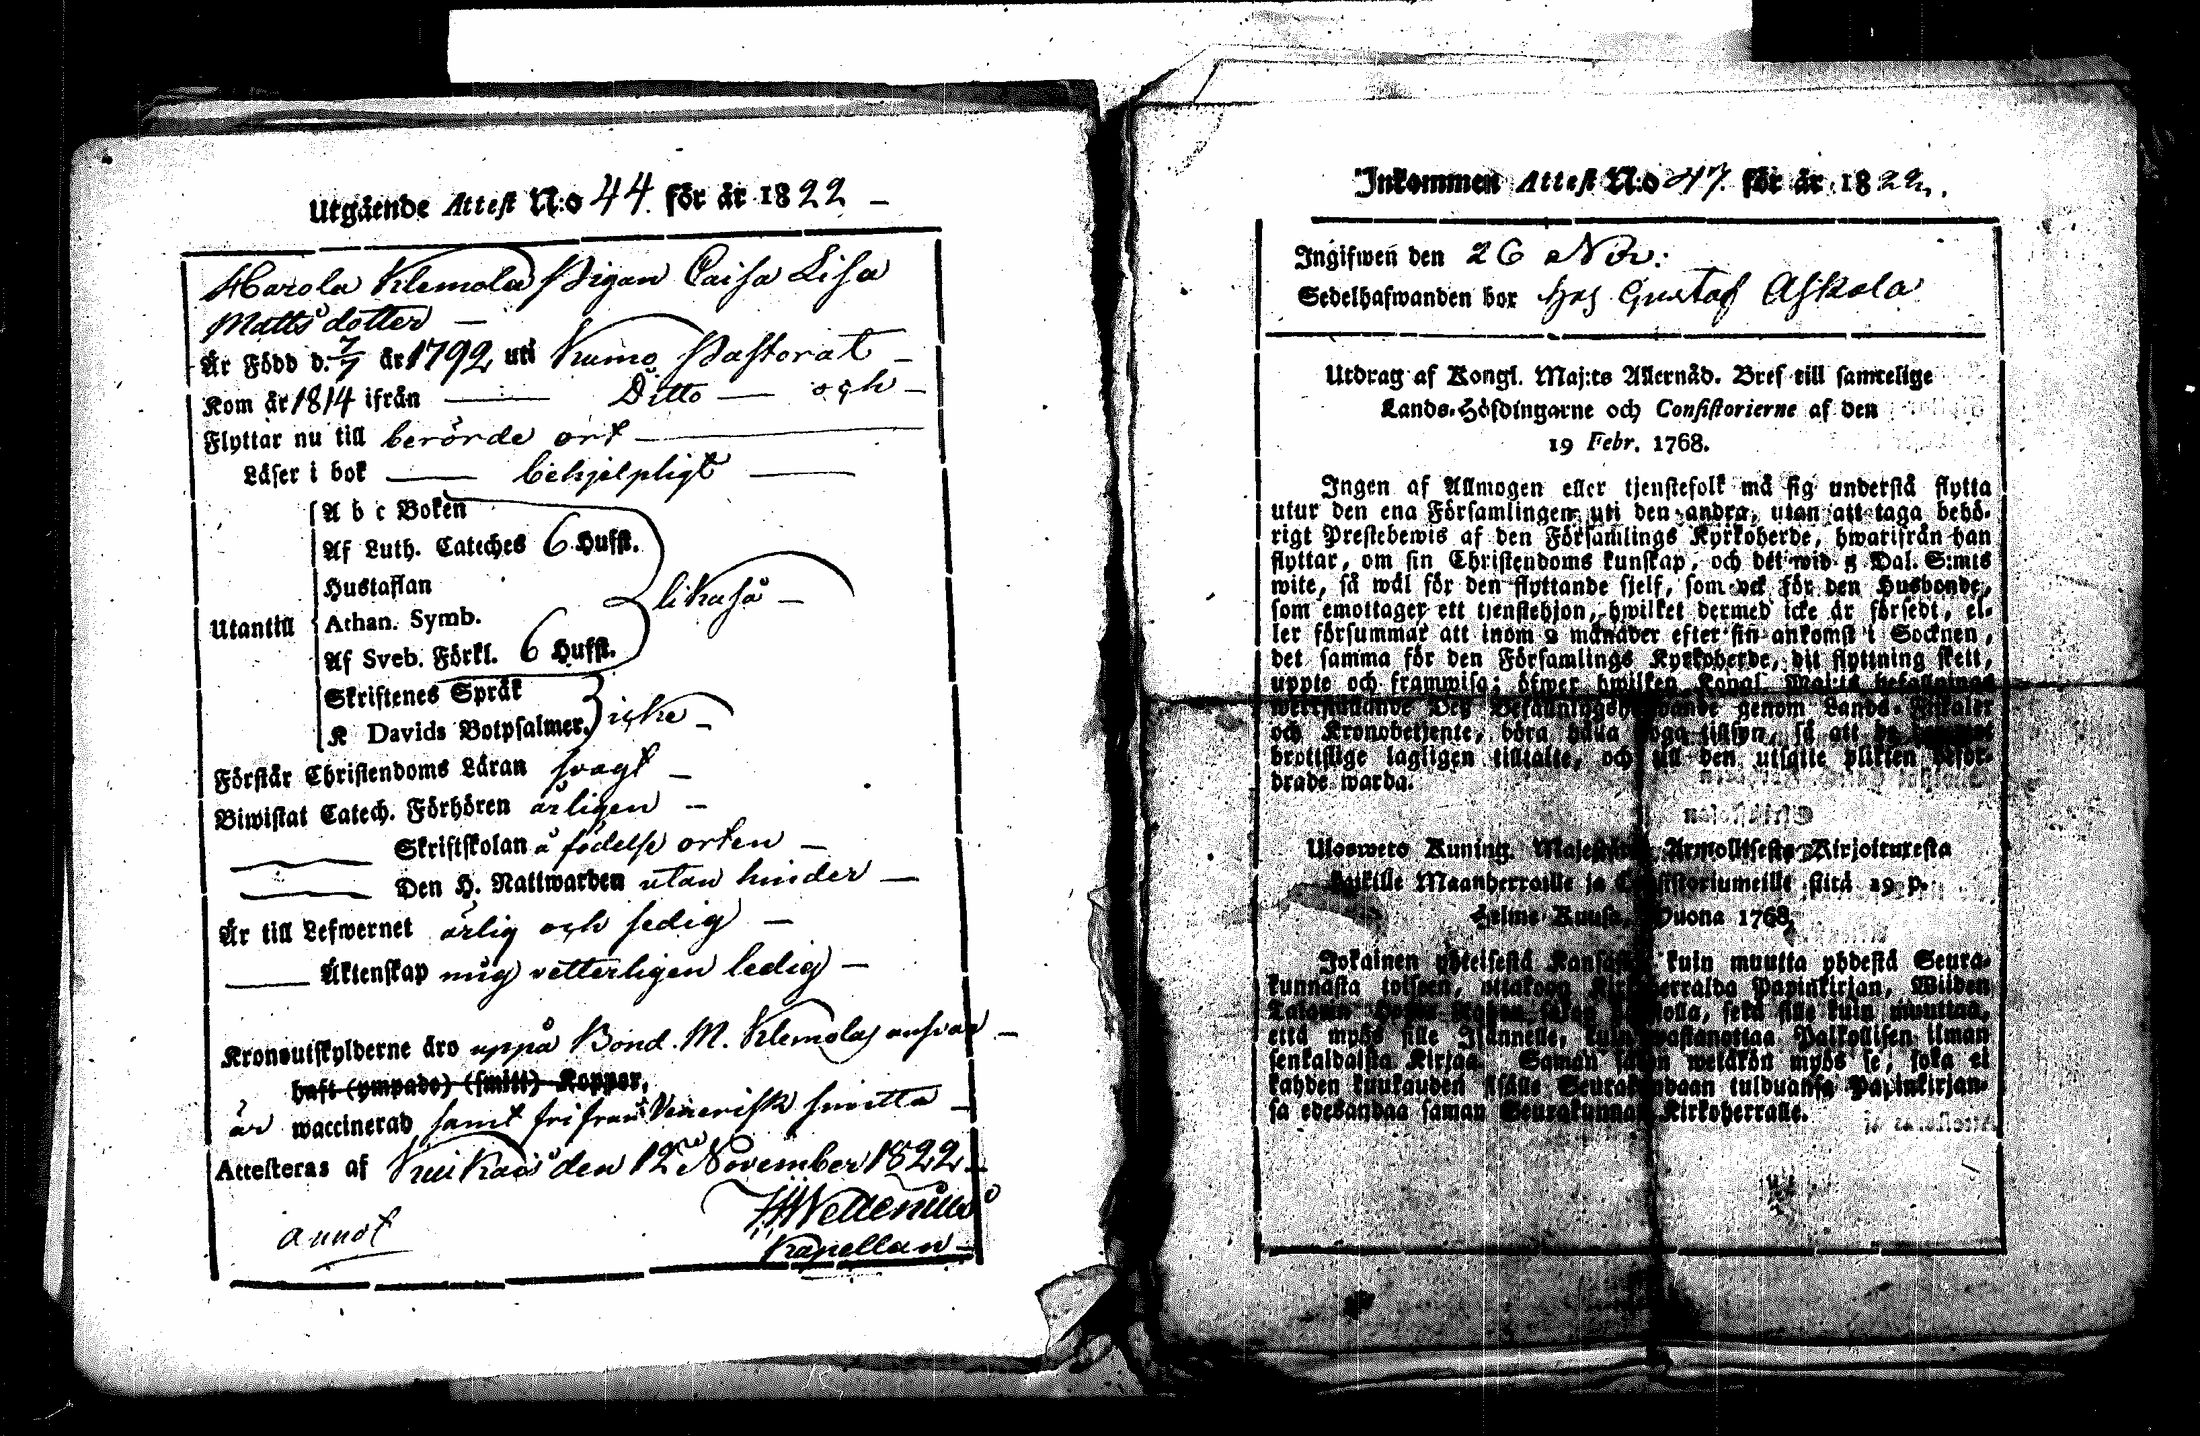 Utgående Attest N:o 44. för år 1822 –
Harola Klemola Pigan Caisa Lisa
Matts dotter –
Är Född d. 7/7 år 1792 uti Kumo Pastorat –
Kom år 1814 ifrån — Ditto — och –
Flyttar nu till berörde ort —
Läser i bok — behjelpligt —
A b c Boken
Af Luth. Cateches 6 Hufst.
Hustaflan
likaså –
Utantill
Athan. Symb.
Af Sveb. Förkl. 6 Hufst.
Skriftenes Språk
K Davids Botpsalmer. icke –
Förstår Christendoms Läran svagt –
Biwistat Catech. Förhören årligen –
— Skriftskolan å födelse orten –
— Den H. Nattwarden utan hinder –
Är till Lefwernet ärlig och sedig –
— Äktenskap mig vetterligen ledig –
Kronoutskylderne äro uppå Bond. M. Klemolas ansvar –
haft (ympade) (smitt) Koppor,
är waccinerad samt fri från Venerisk smitta –
Attesteras af Kuikais den 12 November 1822.
Kapellan –
annot
Inkommen Attest N:o 47. för år 1822.
Ingifwen den 26 Nov:
Sedelhafwanden bor hos Gustaf Askola
Utdrag af Kongl. Maj:ts Allernåd. Bref till samtelige
Lands-Höfdingarne och Consistorierne af den
19 Febr. 1768.
Ingen af Allmogen eller tjenstefolk må sig understå flytta
utur den ena Församlingen uti den andra, utan att taga behö-
rigt Prestebewis af den Församlings Kyrkoherde, hwarifrån han
flyttar, om sin Christendoms kunskap, och det wid 5 Dal. S:mts
wite, så wäl för den flyttande sjelf, som ock för den Husbonde,
som emottager ett tjenstehjon, hwilket dermed icke är försedt, el-
ler försummar att inom 2 månader efter sin ankomst i Socknen,
det samma för den Församlings Kyrkoherde, dit flyttning skett,
uppte och framwisa; öfwer hwilken Kongl. Maj:ts befallnings
werkställande Des Befallningshafwande genom Lands-Fiskaler
och Kronobetjente, böra hålla noga tillsyn, så att
brottslige lagligen tilltalte, och till den utsatte plikten befor-
drade warda.
Ulosweto Kuning. Majestätin Armollisesta Kirjoituxesta
kaikille Maanherroille ja Consistoriumeille siitä 19 p.
Helme Kuusa, Wuona 1768.
Jokainen yhteisestä Kansasta kuin muutta yhdestä Seura-
kunnasta toiseen, ottakoon Kirkkoherralda Papinkirjan, Wiiden
Talarin Hopia Rahan sakon uhalla, sekä sille kuin muuttaa,
että myös sille Isännelle, kuin wastanottaa Palkollisen ilman
senkaldaista Kirjaa. Saman sakon weläkön myös se, joka ei
kahden kuukauden sisälle Seurakundaan tulduansa Papinkirjan-
sa edesandaa saman Seurakunnan Kirkoherralle.